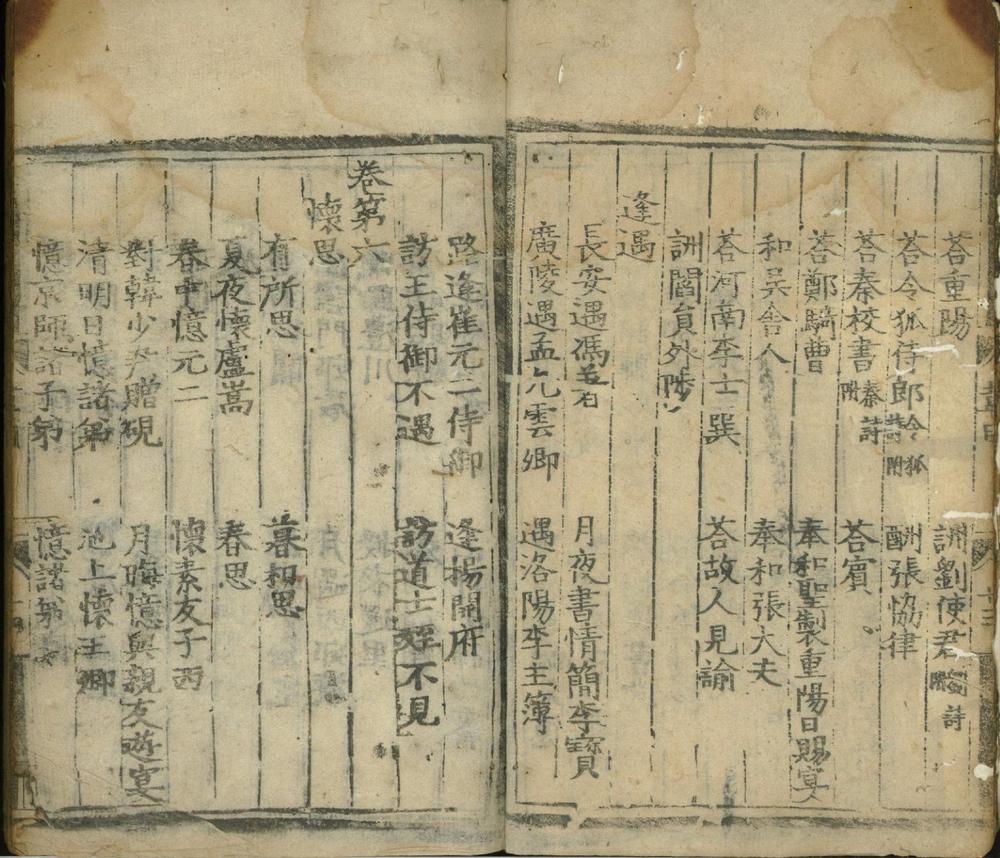 荅重陽 詶劉使君 詩附
荅令狐侍郎 令狐詩附 酬張恊律
荅秦校書 秦詩附 荅賔
荅鄭騎曹 奉和聖製重陽日賜宴
和吳舎人 奉和張大夫
荅河南李士巽 荅故人見諭
詶閻員外陟
逢遇
長安遇馮著 月夜書情簡李寶
廣陵遇孟九雲卿 遇洛陽李主簿
路逢崔元二侍御 逢揚開府
訪王侍御不遇 訪道士姪不見
卷第六
懷思
有所思 暮相思
夏夜懷盧嵩 春思
春中憶元二 懷素友子西
對韓少尹贈硯 月晦憶與親友遊宴
清明日憶諸弟 池上懷王卿
憶京師諸子弟 憶諸弟